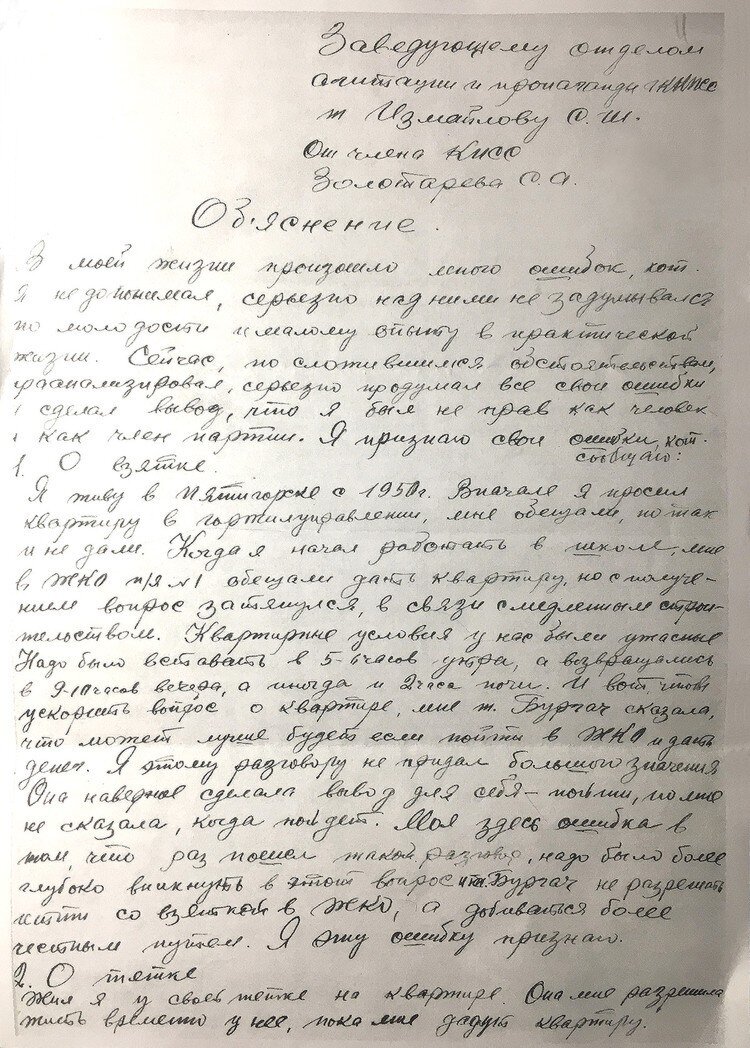 Заведующему отделом
агитации и пропаганды ГККПСС
т Измайлову С. Ш.
От члена КПСС
Золотарева С. А.
Об'яснение.
В моей жизни произошло много ошибок, кот.
я недопонимал, серьезно над ними не задумывался
по молодости и малому опыту в практической
жизни. Сейчас, по сложившимся обстоятельствам,
раанализировал, серьезно продумал все свои ошибки
и сделал вывод, что я был не прав как человек
и как член партии. Я признаю свои ошибки, кот.
сообщаю:
1. О взятке.
Я живу в Пятигорске с 1950 г. Вначале я просил
квартиру в горжилуправлении, мне обещали, но так
и не дали. Когда я начал работать в школе, мне
в ЖКО п/я №1 обещали дать квартиру, но с получе-
нием вопрос затянулся, в связи с медленным строи-
тельством. Квартирные условия у нас были ужасные
Надо было вставать в 5-6 часов утра, а возвращались
в 9-10 часов вечера, а иногда и 2 часа ночи. И вот, чтобы
ускорить вопрос о квартире, мне т. Бургач сказала,
что может лучше будет если пойти в ЖКО и дать
денег. Я этому разговору не придал большого значения
Она наверное сделала вывод для себя - пойти, но мне
не сказала, когда пойдет. Моя здесь ошибка в
том, что раз пошел такой разговор, надо было более
глубоко вникнуть в этот вопрос и т. Бургач не разрешать
итти со взяткой в ЖКО, а добиваться более
честным путем. Я эту ошибку признаю.
2. О тетке
Жил я у своей тетке на квартире. Она мне разрешила
жить временно у нее, пока мне дадут квартиру.